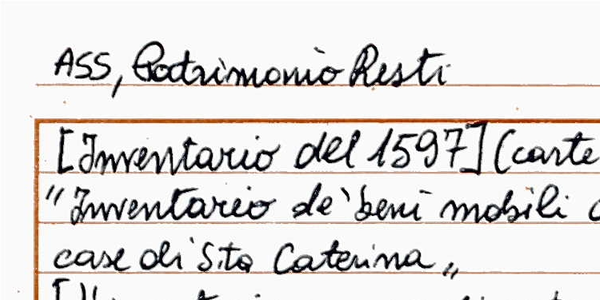 ASS, Patrimonio Resti
[Inventario del 1597] (carte
"Inventario de' beni mobili
case di Sta Caterina„